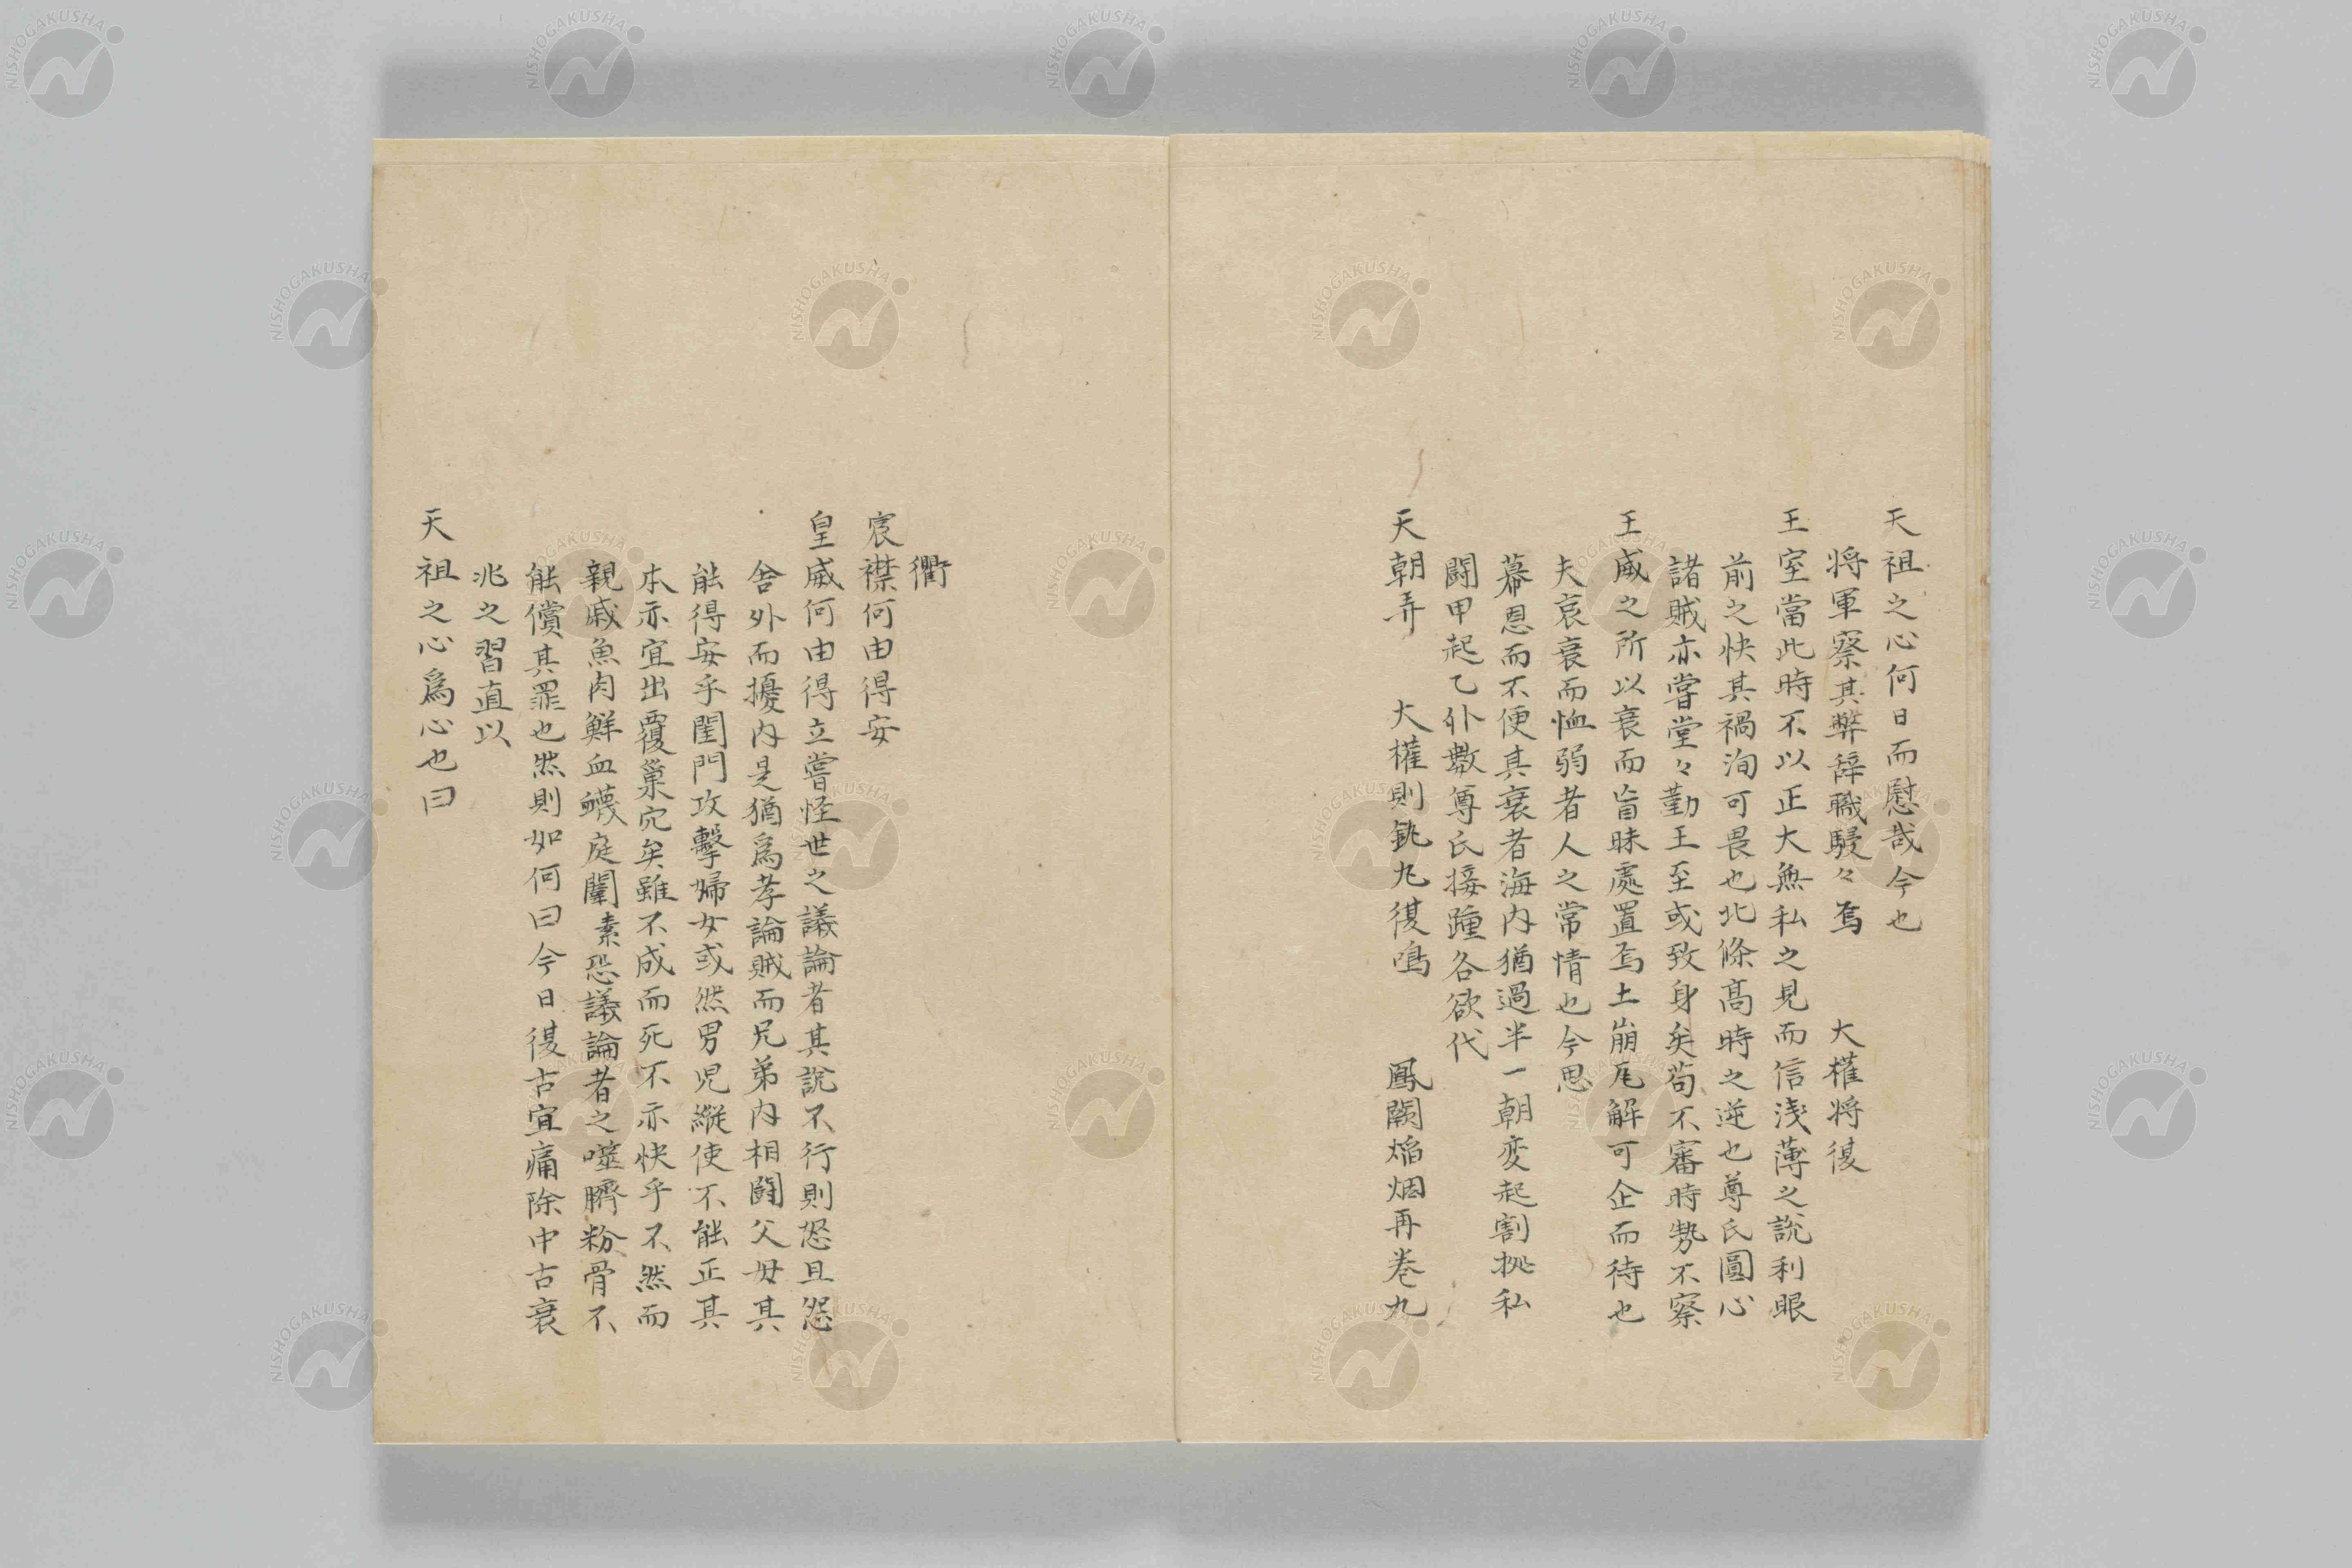 天祖之心何日而慰哉今也
将軍察其弊辞職駸々焉　大權将復
王室當此時不以正大無私之見而信淺薄之説利眼
前之快其禍洵可畏也北條髙時之逆也尊氏圓心
諸賊亦嘗堂々勤王至或致身矣苟不審時勢不察
王威之所以衰而盲昧處置焉土崩瓦解可企而待也
夫哀衰而恤弱者人之常情也今思
幕恩而不便其衰者海内猶過半一朝変起割拠私
闘甲起乙仆數尊氏接踵各欲代　鳳闕焔烟再巻九
天朝弄　大權則銃丸復鳴
衢
宸襟何由得安
皇威何由得立嘗怪世之議論者其説不行則怒且怨
舍外而擾内是猶爲孝論賊而兄弟内相闘父母其
能得安乎閨門攻擊婦女或然男児縱使不能正其
本亦宜出覆巢穴矣雖不成而死不亦快乎不然而
親戚魚肉鮮血衊庭闈素恐議論者之噬臍粉骨不
能償其罪也然則如何曰今日復古宜痛除中古衰
兆之習直以
天祖之心爲心也曰
NISHOGAKUSHA